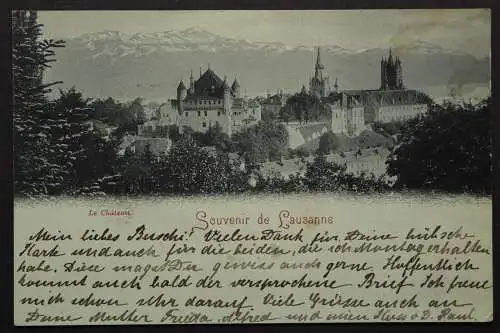 Le Château.
Souvenir de Lausanne
Mein liebes Buschi! Vielen Dank für Deine hübsche
Karte und auch für die beiden, die ich Montag erhalten
habe. Diese magst Du gewiss auch gerne. Hoffentlich
kommt auch bald der versprochene Brief. Ich freue
mich schon sehr darauf. Viele Grüsse auch an
Deine Mutter, Frieda, Alfred und einen Kuss v. D. Karl.